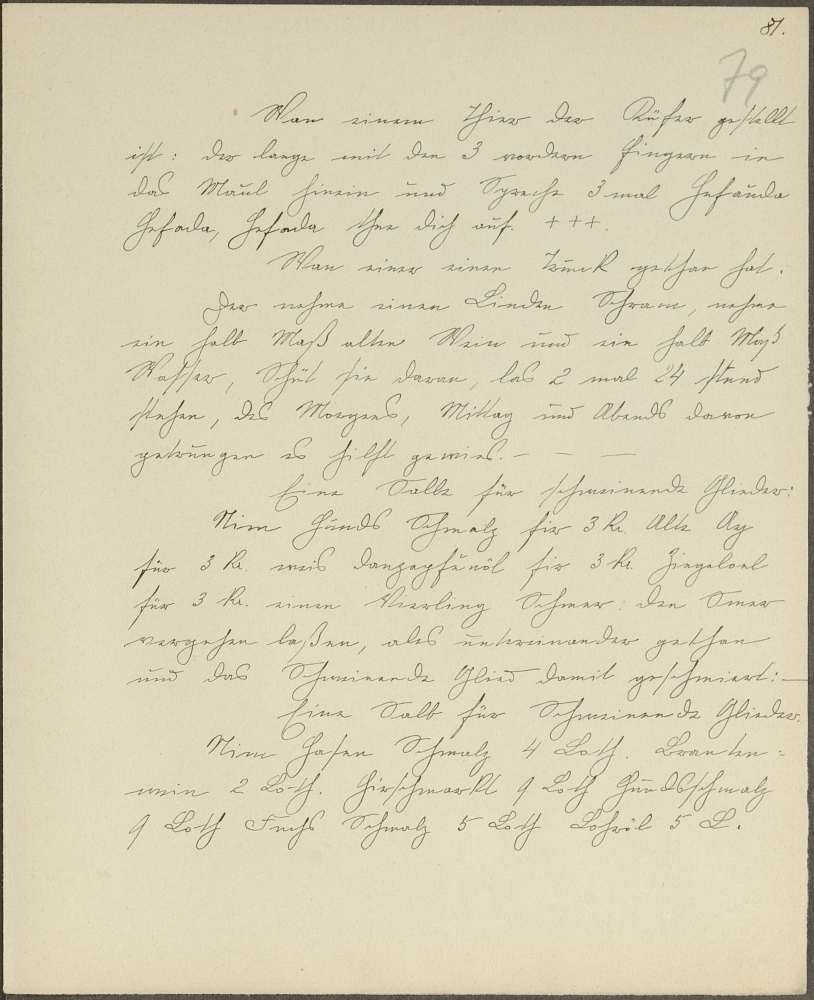 81.
79
Wan einem Thier der Rüfer gestellt
ist: der lange mit den 3 vordern Fingern in
das Maul hinein und Spreche 3 mal Hefauda
Hefada, Hefada thue dich auf. + + +.
Wan einer einen Trunk gethan hat.
Der nehme einen Linden Schram, nehme
ein halb Maß alten Wein und ein halb Maß
Wasser, Schüt sie daran, las 2 mal 24 stund
stehen, des Morgens, Mittag und Abends davon
getrungen es hilft gewies. — — —
Eine Salbe für schweinende Glieder:
Nim Hunds Schmalz fir 3 Kr. Alte Ay
für 3 Kr. weis danzapfenöl fir 3 Kr. Ziegeloel
für 3 Kr. einen Vierling Schmer: den Smer
vergehen laßen, ales untereinander gethan
und das Schweinende Glied damit geschmiert: —
Eine Salb für Schweinende Glieder.
Nim Hasen Schmalz 4 Loth. Branten-
wein 2 Loth. Hirschmarkt 9 Loth Hundsschmalz
9 Loth Fuchs Schmalz 5 Loth Lohröl 5 L.